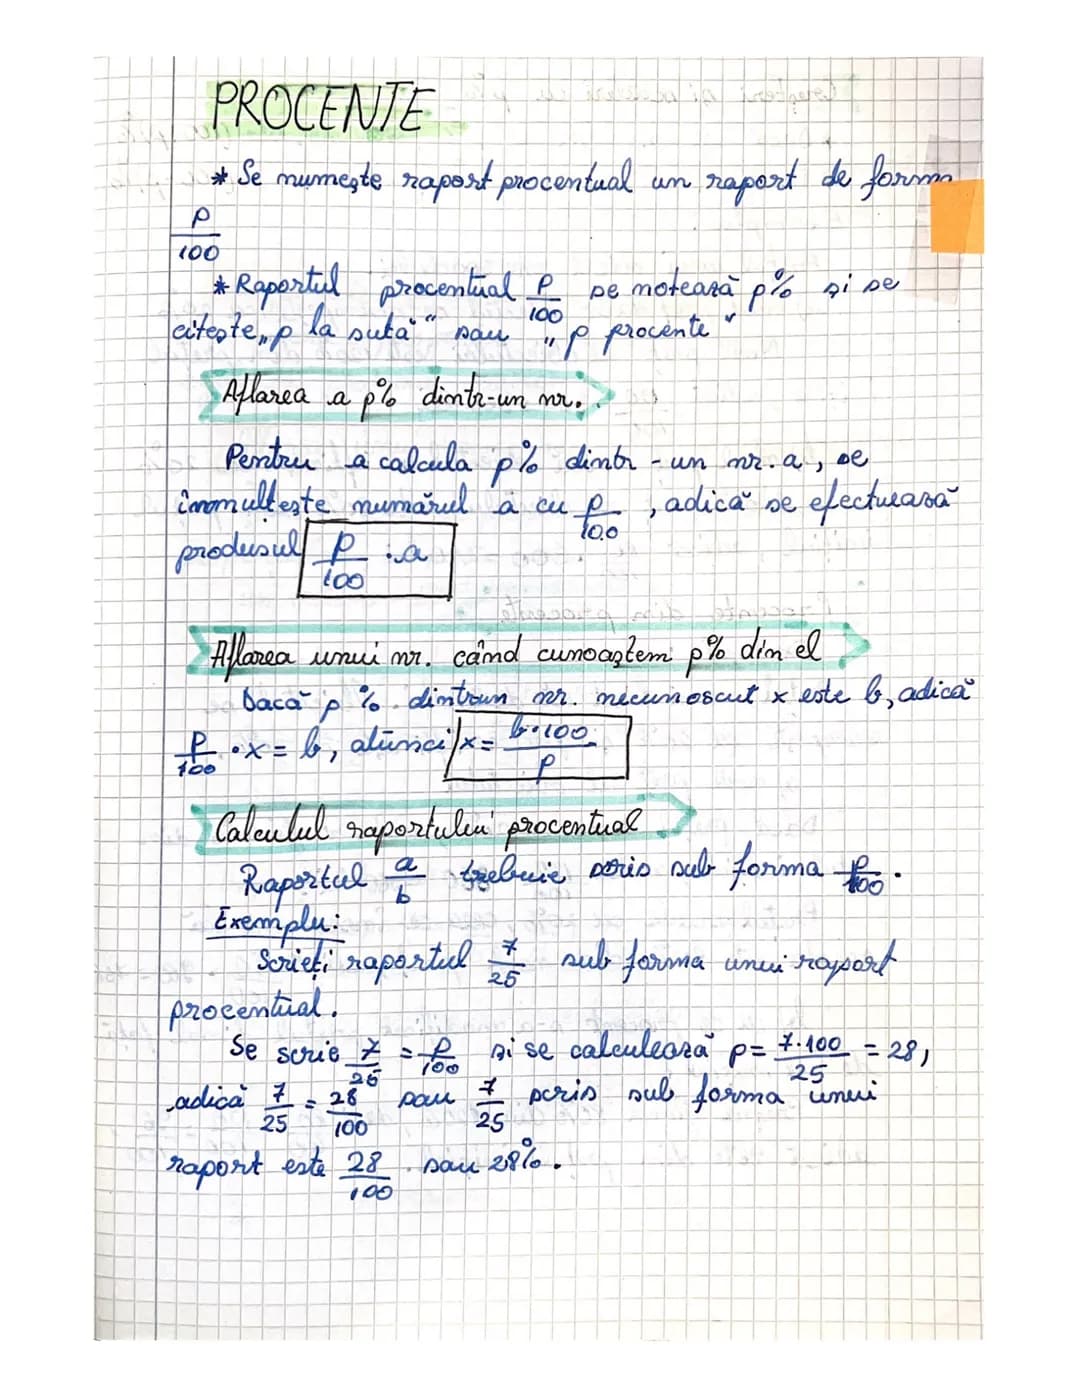 PROCENTE
* Se numește raport procentual un raport de forma
p/100
* Raportul procentual p/100 se notează p% și se
citește „p la sută" sau „p procente"
Aflarea a p% dintr-un nr.
Pentru a calcula p% dintr-un nr. a, se
înmulțește numărul a cu p/100, adică se efectuează
produsul p/100 · a
Aflarea unui nr. când cunoaștem p% din el
Dacă p% dintrun nr. necunoscut x este b, adică
p/100 · x = b, atunci x = b·100/p
Calculul raportului procentual
Raportul a/b trebuie scris sub forma p/100.
Exemplu:
Scrieți raportul 7/25 sub forma unui raport
procentual.
Se scrie 7/25 = p/100 și se calculează p = 7·100/25 = 28,
adică 7/25 = 28/100 sau 7/25 scris sub forma unui
raport este 28/100 sau 28%.